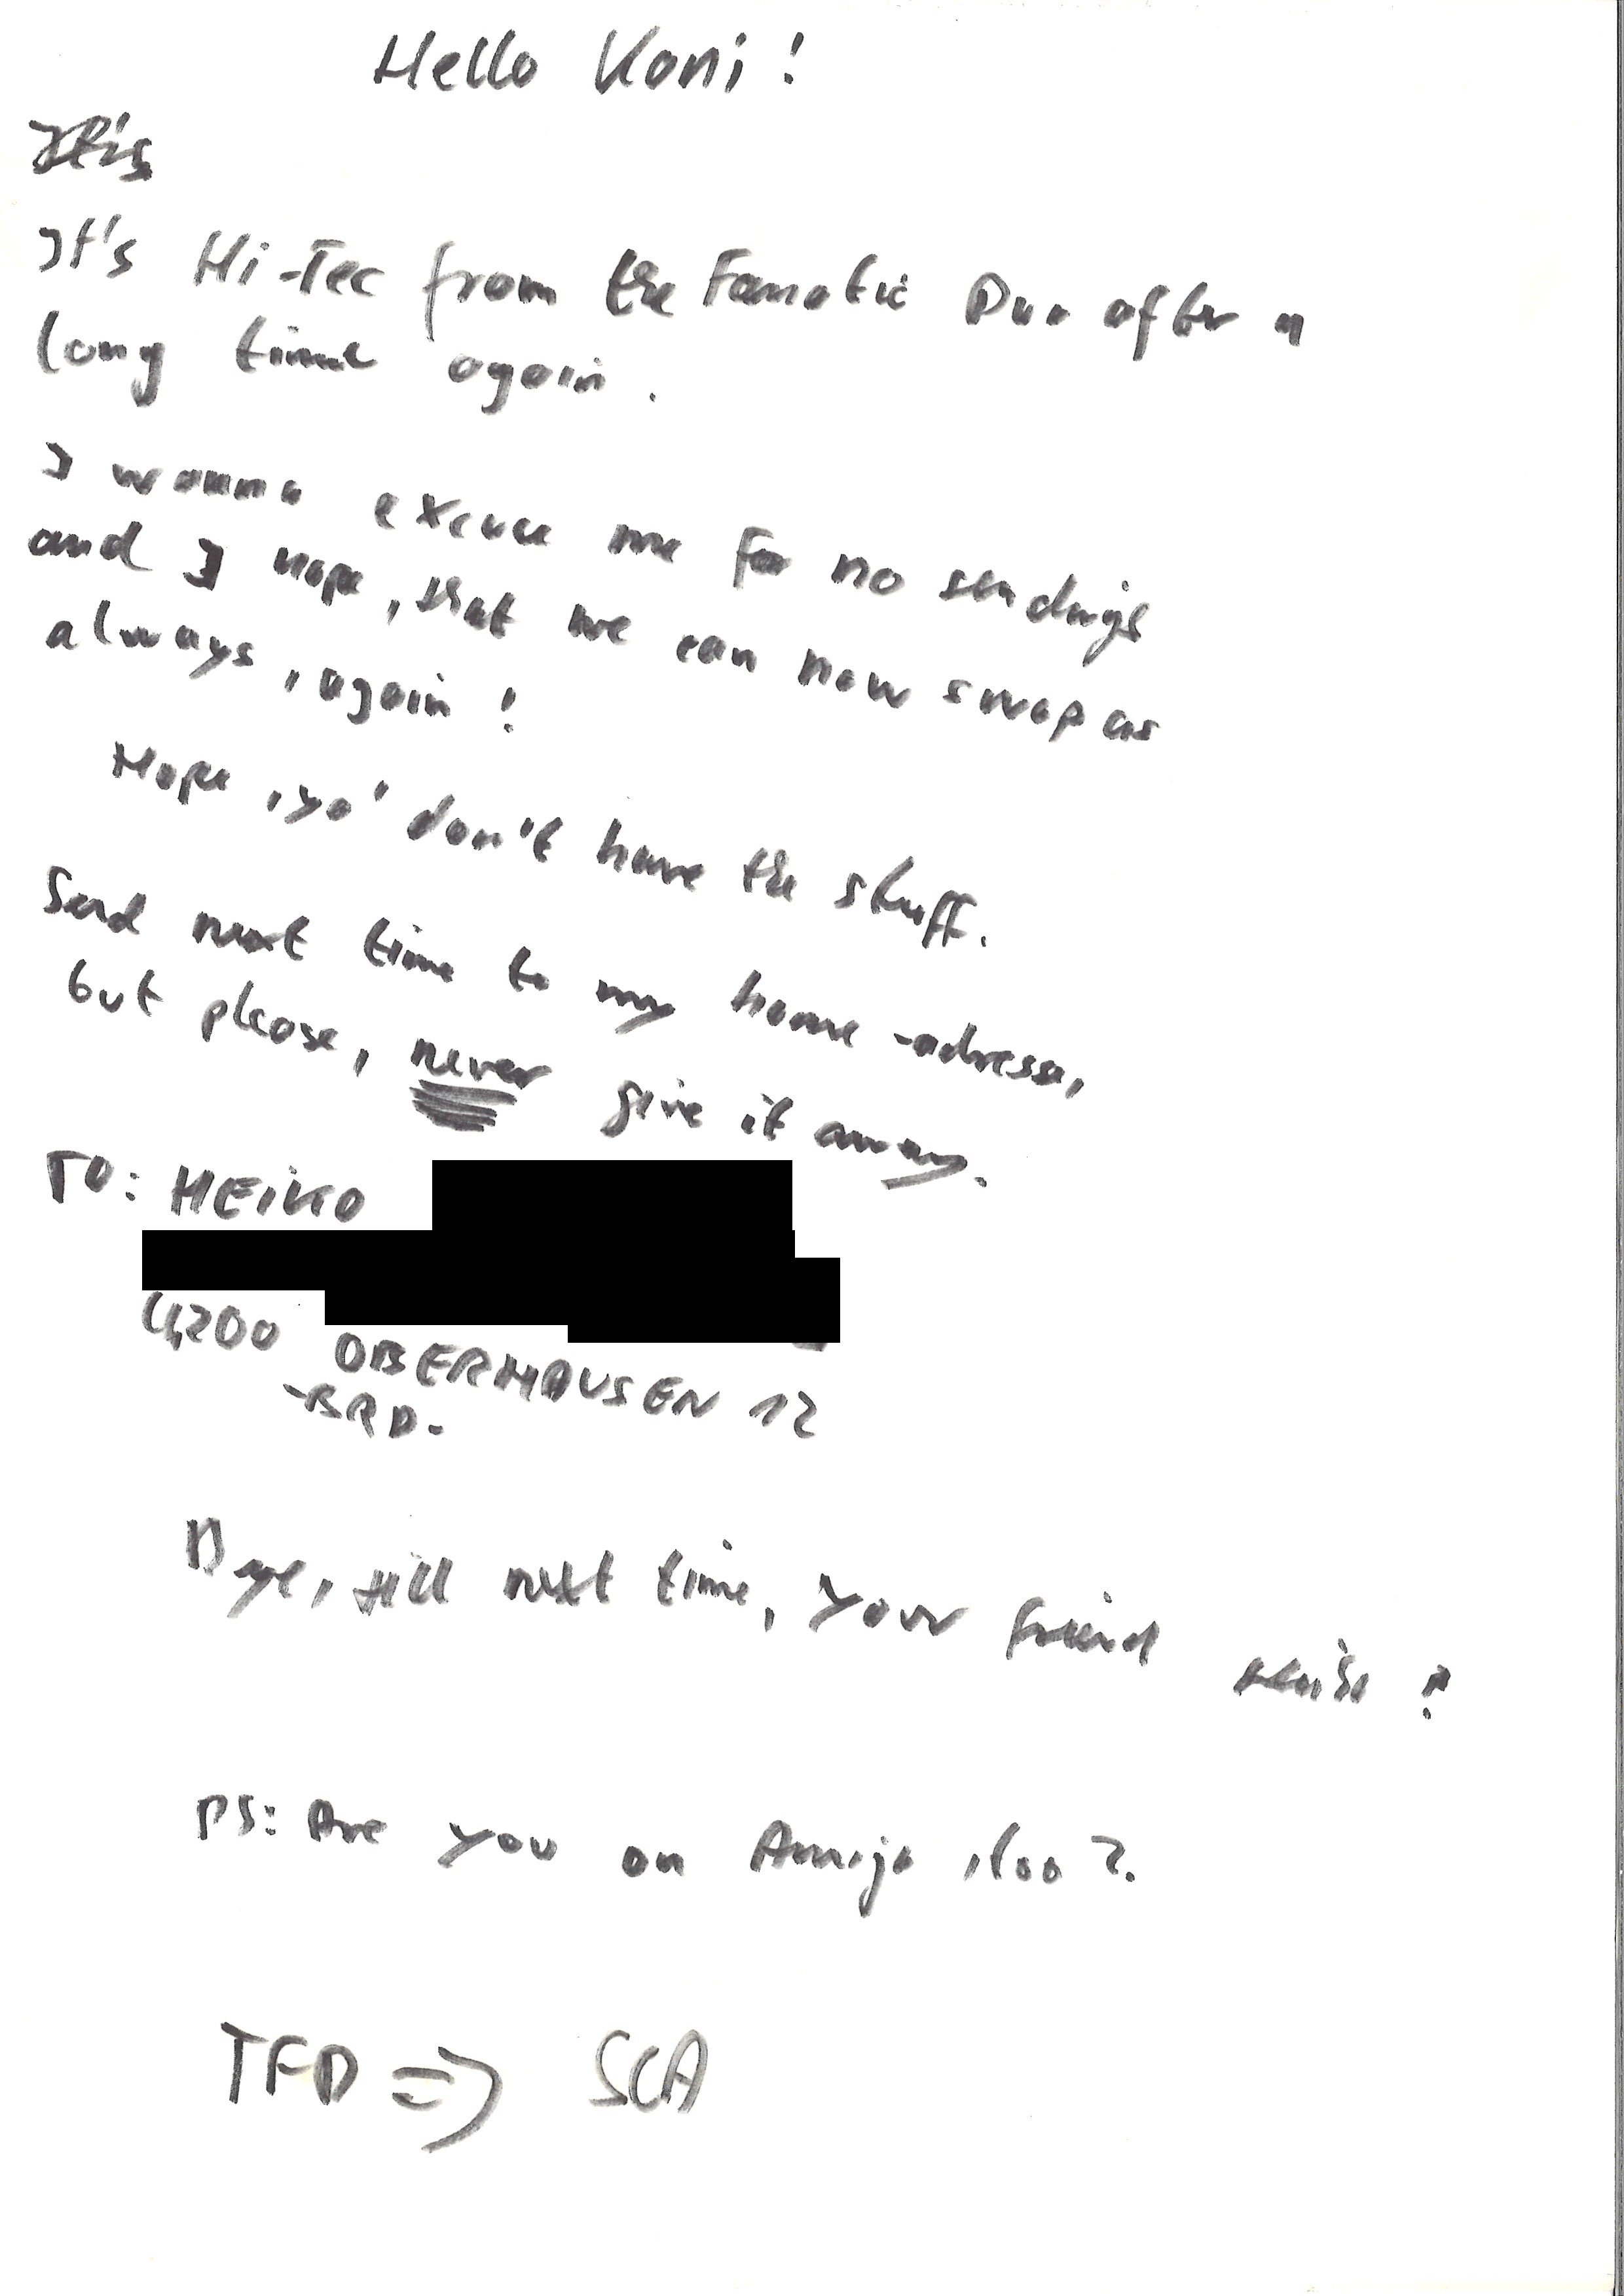 Hello Koni!
It's
It's Hi-Tec from the Fanatic Duo after a
long time again.
I wanna excuse me for no sendings
and I hope, that we can now swap as
always, again!
Hope, yo' don't have the stuff.
Send next time to my home-adresse,
but please, never give it away.
TO: HEIKO
4200 OBERHAUSEN 12
-BRD-
Bye, till next time, your friend Heiko!
PS: Are you on Amiga, too?
TFD => SCA